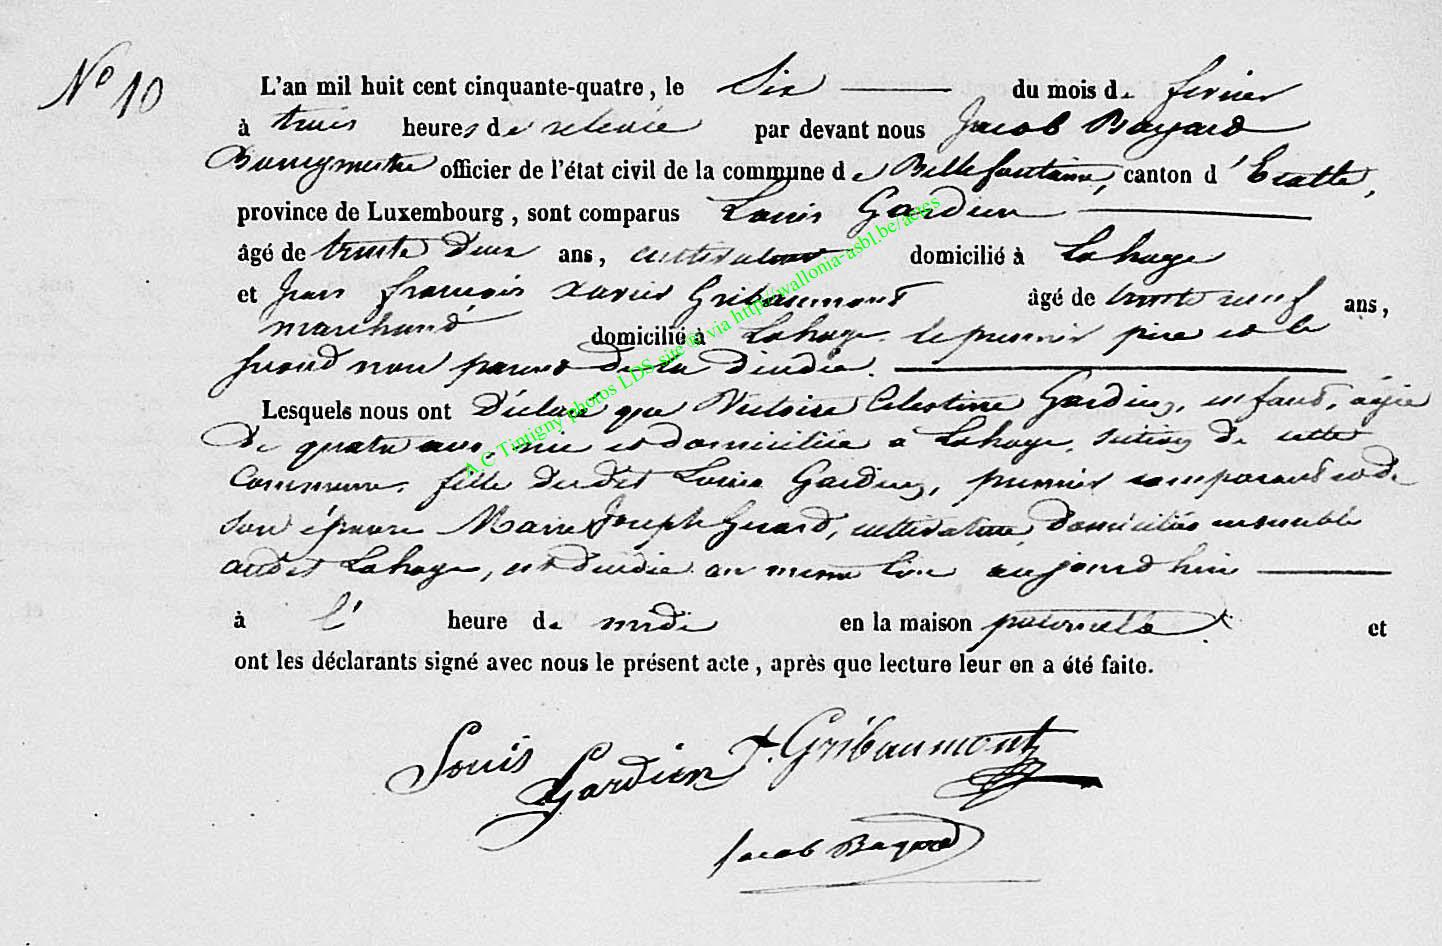 N° 10
L'an mil huit cent cinquante-quatre, le Six du mois de fevrier
à trois heures de relevée par devant nous Jacob Bayard
Bourgmestre officier de l'état civil de la commune de Bellefontaine, canton d'Etalle,
province de Luxembourg, sont comparus Louis Gardien
âgé de trente deux ans, cultivateur domicilié à Lahage
et Jean François Xavier Gribaumont âgé de trente neuf ans,
marchand domicilié à Lahage. le premier père et le
second non parent de la décédée.
Lesquels nous ont Déclaré que Victoire Celestine Gardien, enfant, âgée
De quatre ans, née et domiciliée à Lahage, section de cette
Commune, fille dudit Louis Gardien, premier comparant et de
son épouse Marie Joseph Gerard, cultivateurs, domiciliés ensemble
audit Lahage, est décédée au meme lieu aujourd'hui
à l' heure de midi en la maison paternelle et
ont les déclarants signé avec nous le présent acte, après que lecture leur en a été faite.
Louis Gardien J. Gribaumont
Jacob Bayard
A C Tintigny photos LDS site @ via http://wallonia-asbl.be/actes